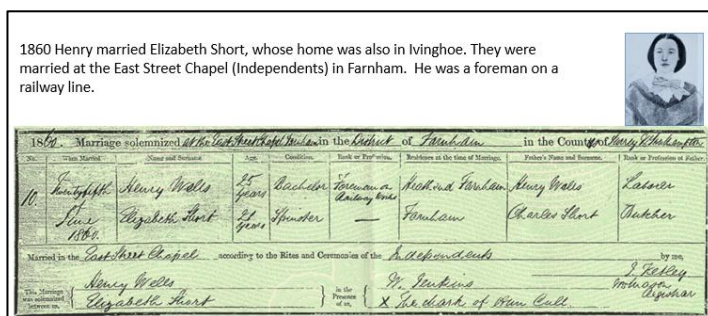 1860 Henry married Elizabeth Short, whose home was also in Ivinghoe. They were
married at the East Street Chapel (Independents) in Farnham. He was a foreman on a
railway line.
1860. Marriage solemnized at the East Street Chapel Farnham in the District of Farnham in the County of Surrey &
No. When Married Name and Surname Age. Condition. Rank or Profession. Residence at the time of Marriage. Father's Name and Surname. Rank or Profession of Father.
10. Twentyfifth June 1860. Henry Wells 25 years Bachelor Foreman on Railway Heath end Farnham Henry Wells Laborer
Elizabeth Short 21 years Spinster — Farnham Charles Short Butcher
Married in the East Street Chapel according to the Rites and Ceremonies of the Independents by me,
This Marriage was solemnized between us, Henry Wells in the Presence of us, W. Jenkins
Elizabeth Short X The mark of Cull Registrar